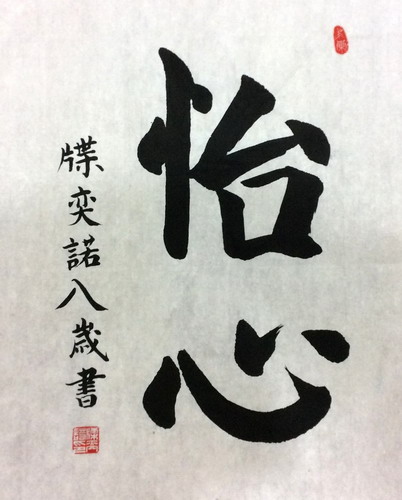 怡心
牒奕諾八歲書